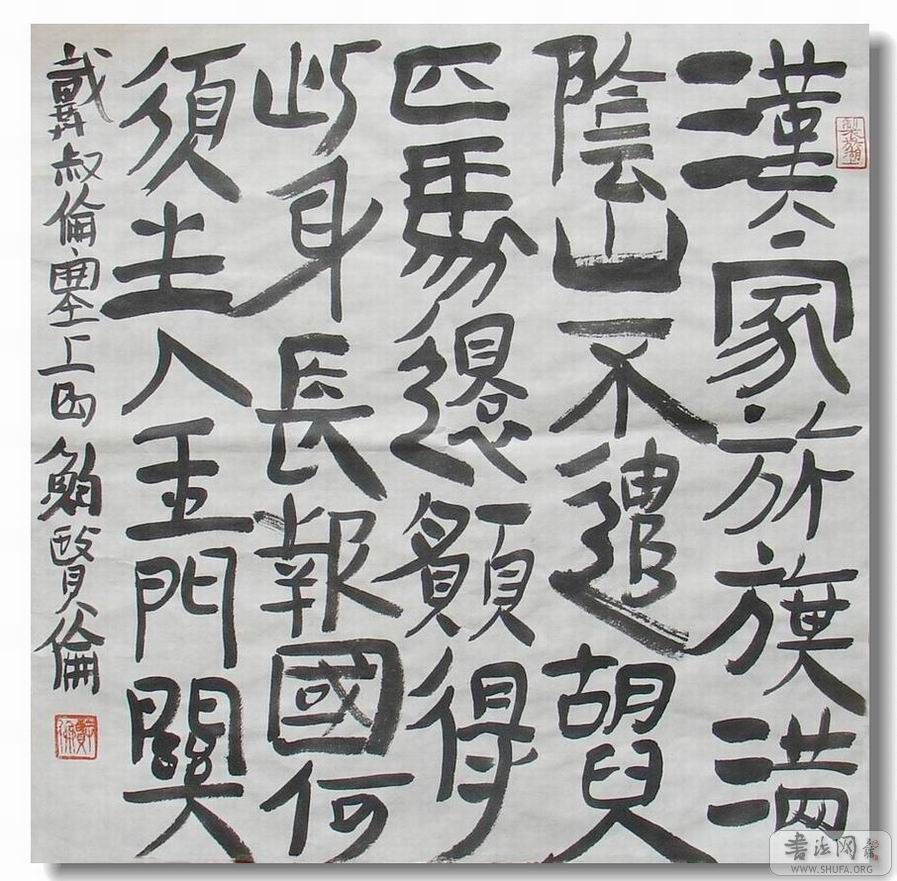 漢家旂旗滿
陰山不遣胡兒
匹馬還願得
此身長報國何
須生入玉門關
戴叔倫塞上曲 鮑賢倫
賢倫
书法网
WWW.SHUFA.ORG